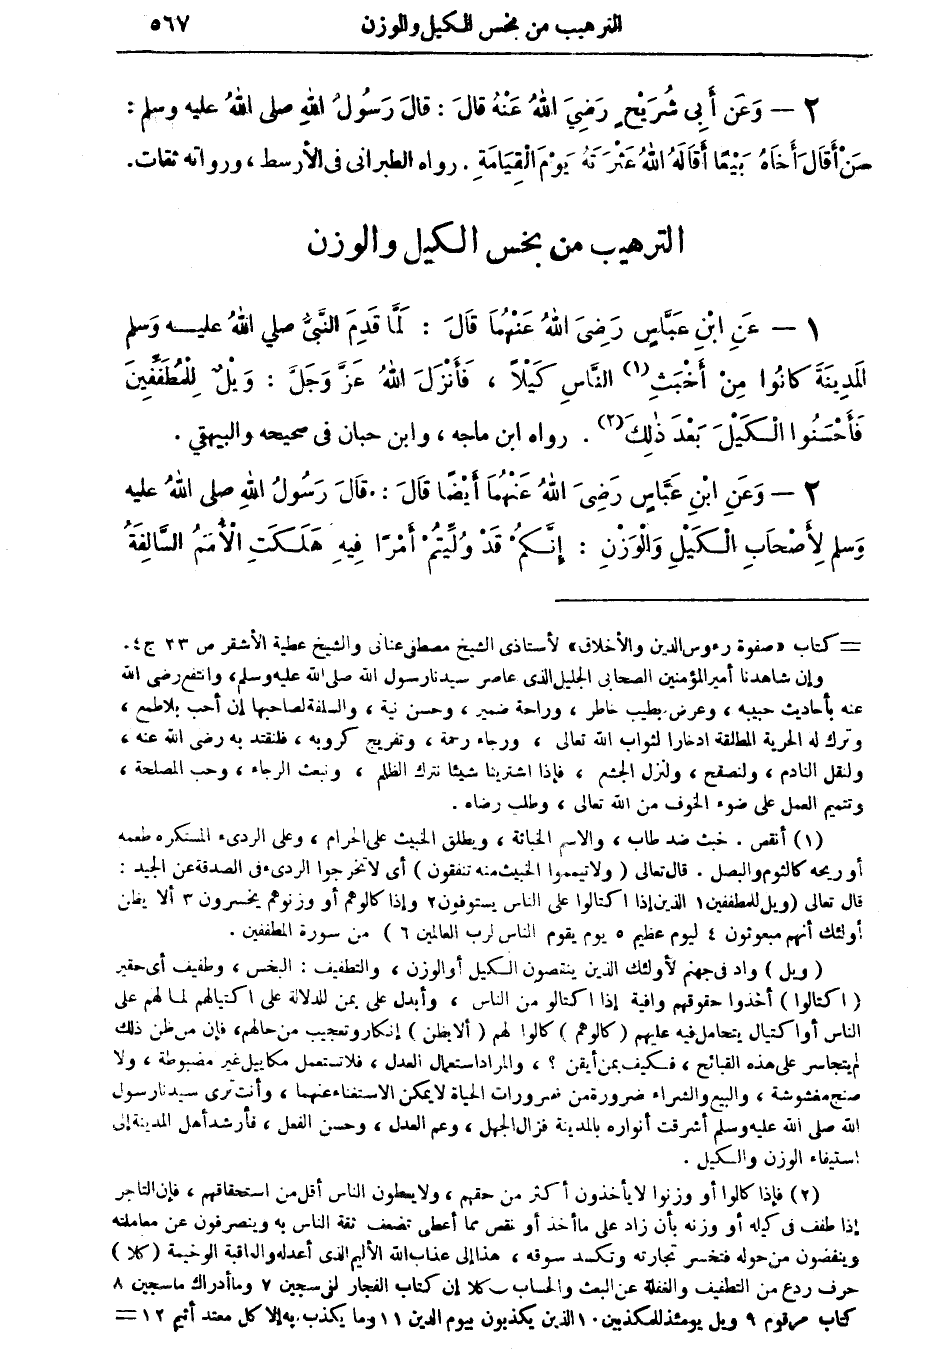 الترهيب من بخس الكيل والوزن ٥٦٧
٢ — وَعَن أَبِى شُرَيْحٍ رَضِيَ اللهُ عَنْهُ قَالَ : قَالَ رَسُولُ اللهِ صلى اللهُ عليه وسلم :
مَنْ أَقَالَ أَخَاهُ بَيْعًا أَقَالَهُ اللهُ عَثْرَتَهُ يَوْمَ الْقِيَامَةِ . رواه الطبرانى فى الأوسط ، ورواته ثقات.
الترهيب من بخس الكيل والوزن
١ — عَنِ ابْنِ عَبَّاسٍ رَضِىَ اللهُ عَنْهُمَا قَالَ : لَمَّا قَدِمَ النَّبِىُّ صلي اللهُ عليه وَسلم
المَدِينَةَ كَانُوا مِنْ أَخْبَثِ (١) النَّاسِ كَيْلاً ، فَأَنْزَلَ اللهُ عَزَّ وَجَلَّ : وَيْلٌ لِلْمُطَفِّفِينَ
فَأَحْسَنُوا الْكَيْلَ بَعْدَ ذٰلِكَ (٢) . رواه ابن ماجه ، وابن حبان فى صحيحه والبيهقي .
٢ — وَعَنِ ابْنِ عَبَّاسٍ رَضِىَ اللهُ عَنْهُمَا أَيْضًا قَالَ : قَالَ رَسُولُ اللهِ صلى اللهُ عليه
وَسلم لِأَصْحَابِ الْكَيْلِ وَالْوَزْنِ : إِنَّكُمْ قَدْ وُلِّيتُمْ أَمْرًا فِيهِ هَلَكَتِ الْأُمَمُ السَّالِفَةُ
= كتاب «صفوة رءوس الدين والأخلاق» لأستاذى الشيخ مصطفى عنانى والشيخ عطية الأشقر ص ٢٣ ج٤.
وإن شاهدنا أمير المؤمنين الصحابى الجليل الذى عاصر سيدنا رسول الله صلى الله عليه وسلم، وانتفع رضى الله
عنه بأحاديث حبيبه ، وعرض بطيب خاطر ، وراحة ضمير ، وحسن نية ، والسلفة لصاحبها إن أحب بلا طمع ،
وترك له الحرية المطلقة ادخارا لثواب الله تعالى ، ورجاء رحمة ، وتفريج كروبه ، فلنقتد به رضى الله عنه ،
ولنقل النادم ، ولنصفح ، ولنزل الجشع ، فإذا اشترينا شيئا نترك الظلم ، ونبعث الرجاء ، وحب المصلحة ،
وتتميم العمل على ضوء الخوف من الله تعالى ، وطلب رضاه .
(١) أنقص . خبث ضد طاب ، والاسم الخباثة ، ويطلق الخبيث على الحرام ، وعلى الردىء المستكره طعمه
أو ريحه كالثوم والبصل . قال تعالى ( ولا تيمموا الخبيث منه تنفقون ) أى لا تخرجوا الردىء فى الصدقة عن الجيد :
قال تعالى (ويل للمطففين ١ الذين إذا اكتالوا على الناس يستوفون ٢ وإذا كالوهم أو وزنوهم يخسرون ٣ ألا يظن
أولئك أنهم مبعوثون ٤ ليوم عظيم ٥ يوم يقوم الناس لرب العالمين ٦ ) من سورة المطففين .
( ويل ) واد فى جهنم لأولئك الذين ينتقصون الكيل أو الوزن ، والتطفيف : البخس ، وطفيف أى حقير
( اكتالوا ) أخذوا حقوقهم وافية إذا اكتالو من الناس ، وأبدل على بمن للدلالة على اكتيالهم لما لهم على
الناس أو اكتيال يتحامل فيه عليهم ( كالوهم ) كالوا لهم ( ألا يظن ) إنكار وتعجيب من حالهم، فإن من ظن ذلك
لم يتجاسر على هذه القبائح ، فكيف بمن أيقن ؟ ، والمراد استعمال العدل ، فلا تستعمل مكاييل غير مضبوطة ، ولا
صنج مغشوشة ، والبيع والشراء ضرورة من ضرورات الحياة لا يمكن الاستغناء عنهما ، وأنت ترى سيدنا رسول
الله صلى الله عليه وسلم أشرقت أنواره بالمدينة فزال الجهل ، وعم العدل ، وحسن الفعل ، فأرشد أهل المدينة إلى
استيفاء الوزن والكيل .
(٢) فإذا كالوا أو وزنوا لا يأخذون أكثر من حقهم ، ولا يعطون الناس أقل من استحقاقهم ، فإن التاجر
إذا طفف فى كيله أو وزنه بأن زاد على ما أخذ أو نقص مما أعطى تضعف ثقة الناس به وينصرفون عن معاملته
وينفضون من حوله فتخسر تجارته وتكسد سوقه ، هذا إلى عذاب الله الأليم الذى أعد له والعاقبة الوخيمة ( كلا )
حرف ردع عن التطفيف والغفلة عن البعث والحساب كلا إن كتاب الفجار لفى سجين ٧ وما أدراك ما سجين ٨
كتاب مرقوم ٩ ويل يومئذ للمكذبين ١٠ الذين يكذبون بيوم الدين ١١ وما يكذب به إلا كل معتد أثيم ١٢ =